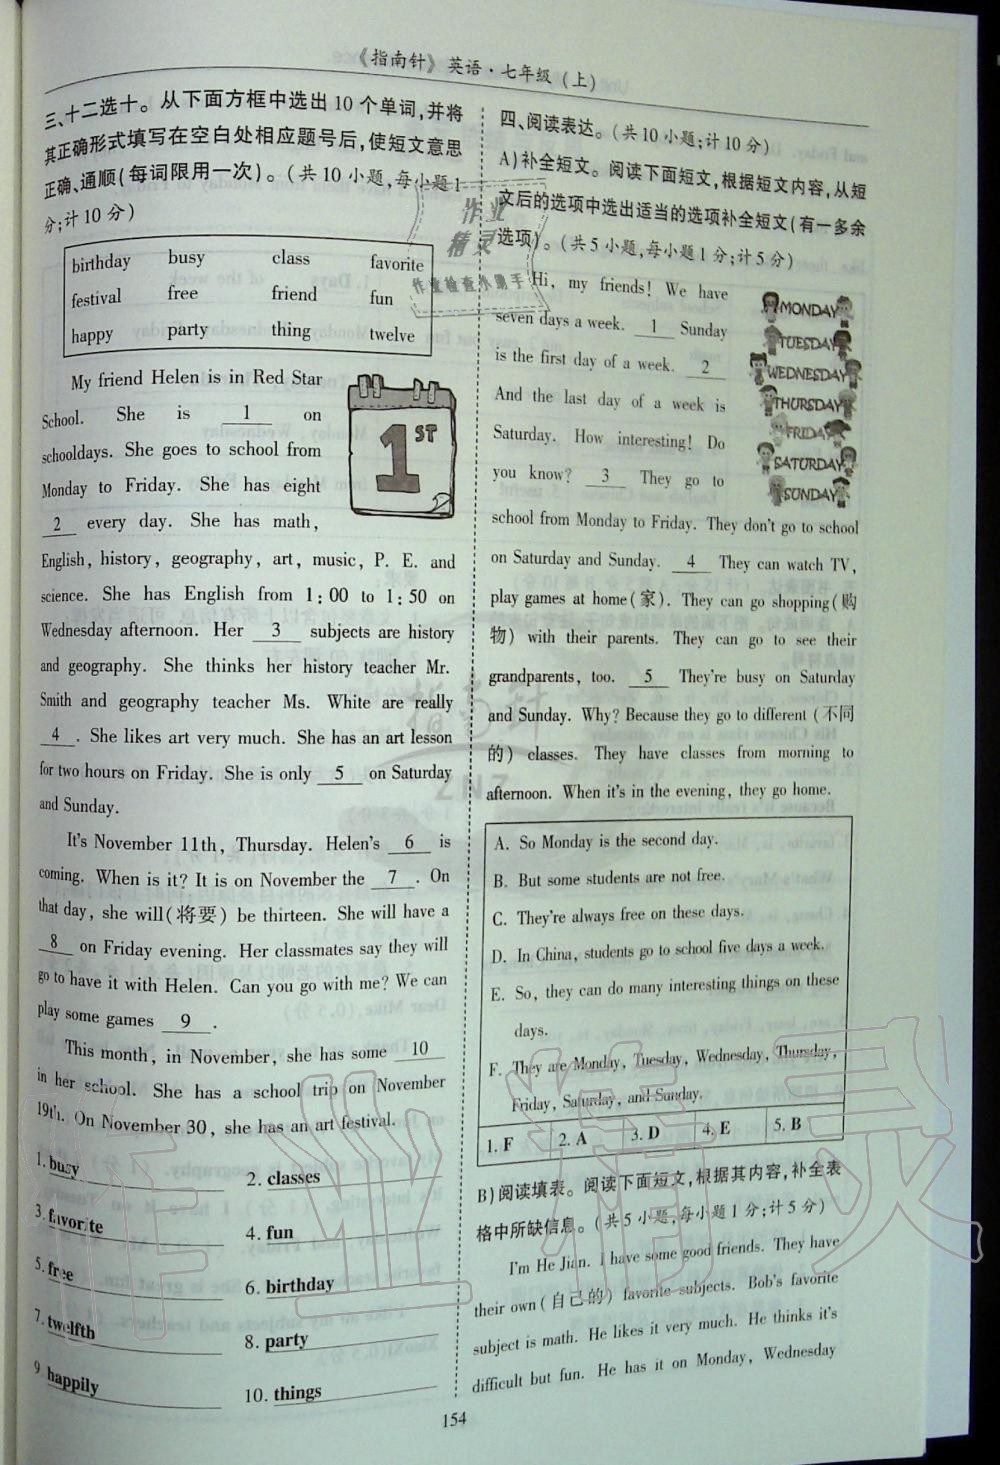 《指南针》英语·七年级(上)
三、十二选十。从下面方框中选出 10 个单词,并将
其正确形式填写在空白处相应题号后,使短文意思
正确、通顺(每词限用一次)。(共 10 小题,每小题 1
分;计 10 分)
birthday busy class favorite
festival free friend fun
happy party thing twelve
My friend Helen is in Red Star
School. She is 1 on
schooldays. She goes to school from
Monday to Friday. She has eight
2 every day. She has math,
English, history, geography, art, music, P. E. and
science. She has English from 1:00 to 1:50 on
Wednesday afternoon. Her 3 subjects are history
and geography. She thinks her history teacher Mr.
Smith and geography teacher Ms. White are really
4 . She likes art very much. She has an art lesson
for two hours on Friday. She is only 5 on Saturday
and Sunday.
It's November 11th, Thursday. Helen's 6 is
coming. When is it? It is on November the 7 . On
that day, she will(将要) be thirteen. She will have a
8 on Friday evening. Her classmates say they will
go to have it with Helen. Can you go with me? We can
play some games 9 .
This month, in November, she has some 10
in her school. She has a school trip on November
19th. On November 30, she has an art festival.
1. busy 2. classes
3. favorite 4. fun
5. free 6. birthday
7. twelfth 8. party
9 happily 10. things
1ST
四、阅读表达。(共 10 小题;计 10 分)
A)补全短文。阅读下面短文,根据短文内容,从短
文后的选项中选出适当的选项补全短文(有一多余
选项)。(共 5 小题,每小题 1 分;计 5 分)
Hi, my friends! We have
seven days a week. 1 Sunday
is the first day of a week. 2
And the last day of a week is
Saturday. How interesting! Do
you know? 3 They go to
school from Monday to Friday. They don't go to school
on Saturday and Sunday. 4 They can watch TV,
play games at home(家). They can go shopping(购
物) with their parents. They can go to see their
grandparents, too. 5 They're busy on Saturday
and Sunday. Why? Because they go to different (不同
的) classes. They have classes from morning to
afternoon. When it's in the evening, they go home.
MONDAY
TUESDAY
WEDNESDAY
THURSDAY
FRIDAY
SATURDAY
SUNDAY
A. So Monday is the second day.
B. But some students are not free.
C. They're always free on these days.
D. In China, students go to school five days a week.
E. So, they can do many interesting things on these
days.
F. They are Monday, Tuesday, Wednesday, Thursday,
Friday, Saturday, and Sunday.
1. F 2. A 3. D 4. E 5. B
B)阅读填表。阅读下面短文,根据其内容,补全表
格中所缺信息。(共 5 小题,每小题 1 分;计 5 分)
I'm He Jian. I have some good friends. They have
their own(自己的) favorite subjects. Bob's favorite
subject is math. He likes it very much. He thinks it's
difficult but fun. He has it on Monday, Wednesday
154
作业
精灵
作业检查小帮手
指南针
ZNZ
作业精灵